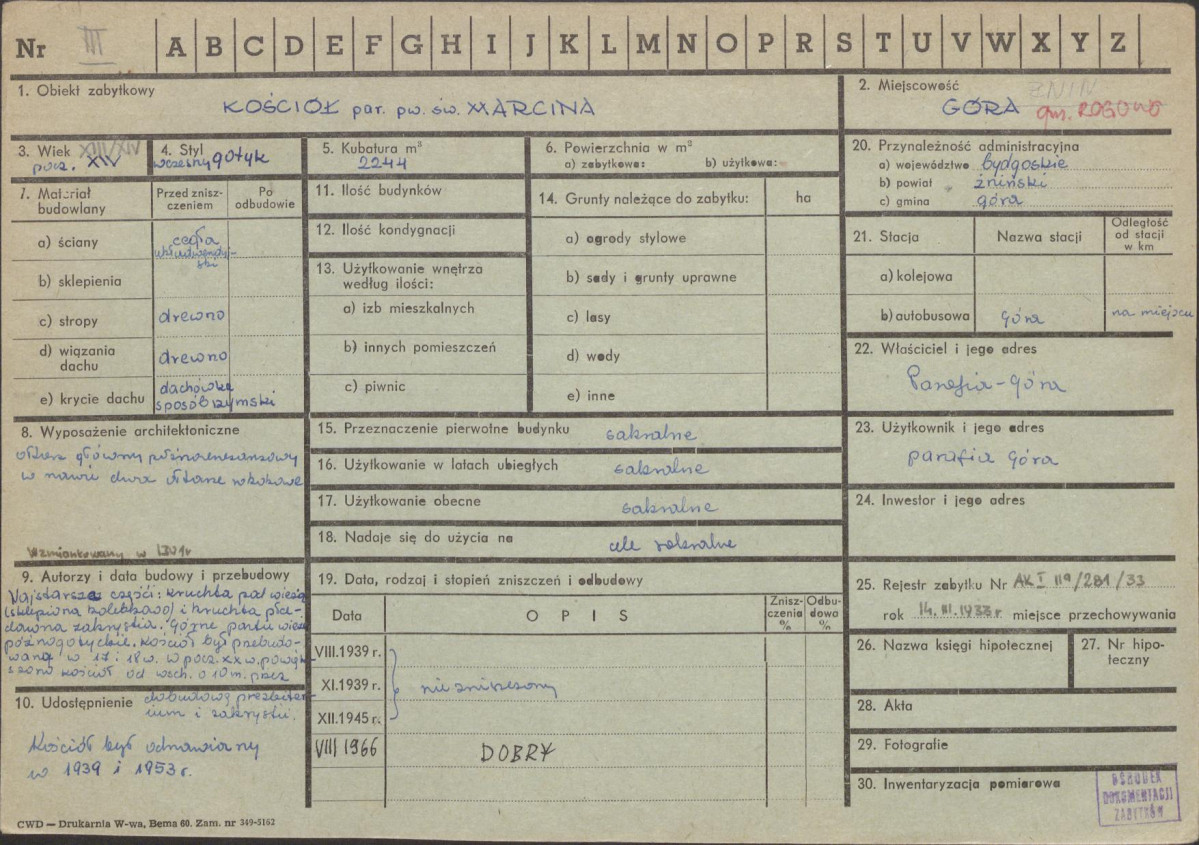 Nr III A B C D E F G H I J K L M N O P R S T U V W X Y Z
1. Obiekt zabytkowy
KOŚCIÓŁ par. pw. św. MARCINA
2. Miejscowość ŻNIN
GÓRA gm. ROGOWO
3. Wiek XIII/XIV
pocz. XIV
4. Styl
wczesny gotyk
5. Kubatura m³
2244
6. Powierzchnia w m²
a) zabytkowa: b) użytkowa:
20. Przynależność administracyjna
a) województwo bydgoskie
b) powiat żniński
c) gmina góra
7. Materiał budowlany
Przed zniszczeniem
Po odbudowie
a) ściany cegła
b) sklepienia
c) stropy drewno
d) wiązania dachu drewno
e) krycie dachu dachówka
sposób rzymski
11. Ilość budynków
12. Ilość kondygnacji
13. Użytkowanie wnętrza
według ilości:
a) izb mieszkalnych
b) innych pomieszczeń
c) piwnic
14. Grunty należące do zabytku: ha
a) ogrody stylowe
b) sady i grunty uprawne
c) lasy
d) wody
e) inne
21. Stacja Nazwa stacji Odległość
od stacji
w km
a) kolejowa
b) autobusowa Góra na miejscu
22. Właściciel i jego adres
Parafia-Góra
8. Wyposażenie architektoniczne
ołtarz główny późnorenesansowy
w nawie dwa ołtarze rokokowe
Wzmiankowany w
15. Przeznaczenie pierwotne budynku sakralne
16. Użytkowanie w latach ubiegłych sakralne
17. Użytkowanie obecne sakralne
18. Nadaje się do użycia na cele sakralne
23. Użytkownik i jego adres
parafia Góra
24. Inwestor i jego adres
9. Autorzy i data budowy i przebudowy
Najstarsze części: kruchta pod wieżą
(sklepiona kolebkowo) i kruchta płd-
dawna zakrystia. Górne partie wieży
późnogotyckie. Kościół był przebudo-
wany w 17 i 18 w. w pocz. XX w. powięk-
szono kościół od wsch. o 10 m. przez
dobudowę prezbiter-
ium i zakrystii.
10. Udostępnienie
Kościół był odnawiany
w 1939 i 1953 r.
19. Data, rodzaj i stopień zniszczeń i odbudowy
Data O P I S Zniszczenia % Odbudowa %
VIII.1939 r.
XI.1939 r. nie zniszczony
XII.1945 r.
VIII 1966 DOBRY
25. Rejestr zabytku Nr AK I 11a/281/33
rok 14.III.1933 r miejsce przechowywania
26. Nazwa księgi hipotecznej
27. Nr hipoteczny
28. Akta
29. Fotografie
30. Inwentaryzacja pomiarowa
OŚRODEK
DOKUMENTACJI
ZABYTKÓW
CWD — Drukarnia W-wa, Bema 60. Zam. nr 349-5162